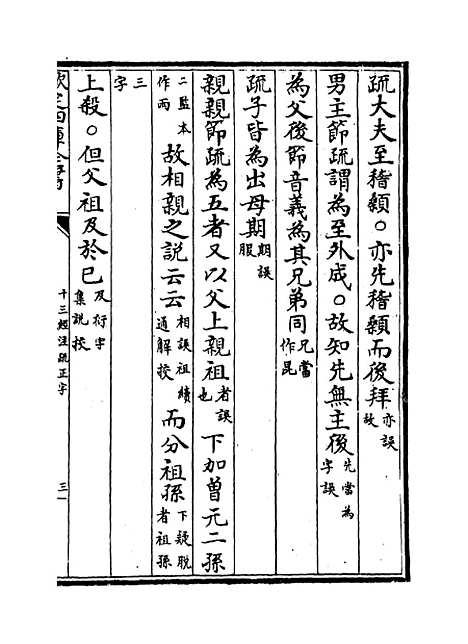 疏大夫至稽顙。亦先稽顙而後拜亦誤故
男主節疏謂為至外成。故知先無主後先當為字誤
為父後節音義為其兄弟同兄當作昆
疏子皆為出母期期誤服
親親節疏為五者又以父上親祖者誤也下加曾元二孫
二監本作兩故相親之説云云相誤祖續通解挍而分祖孫下疑脱者祖孫
三字
上殺。但父祖及於已及衍字集説挍
欽定四庫全書
十三經注疏正字
三一